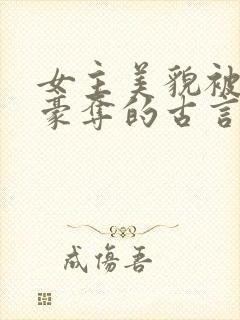 女主美貌被
豪夺的古言
成伤吾